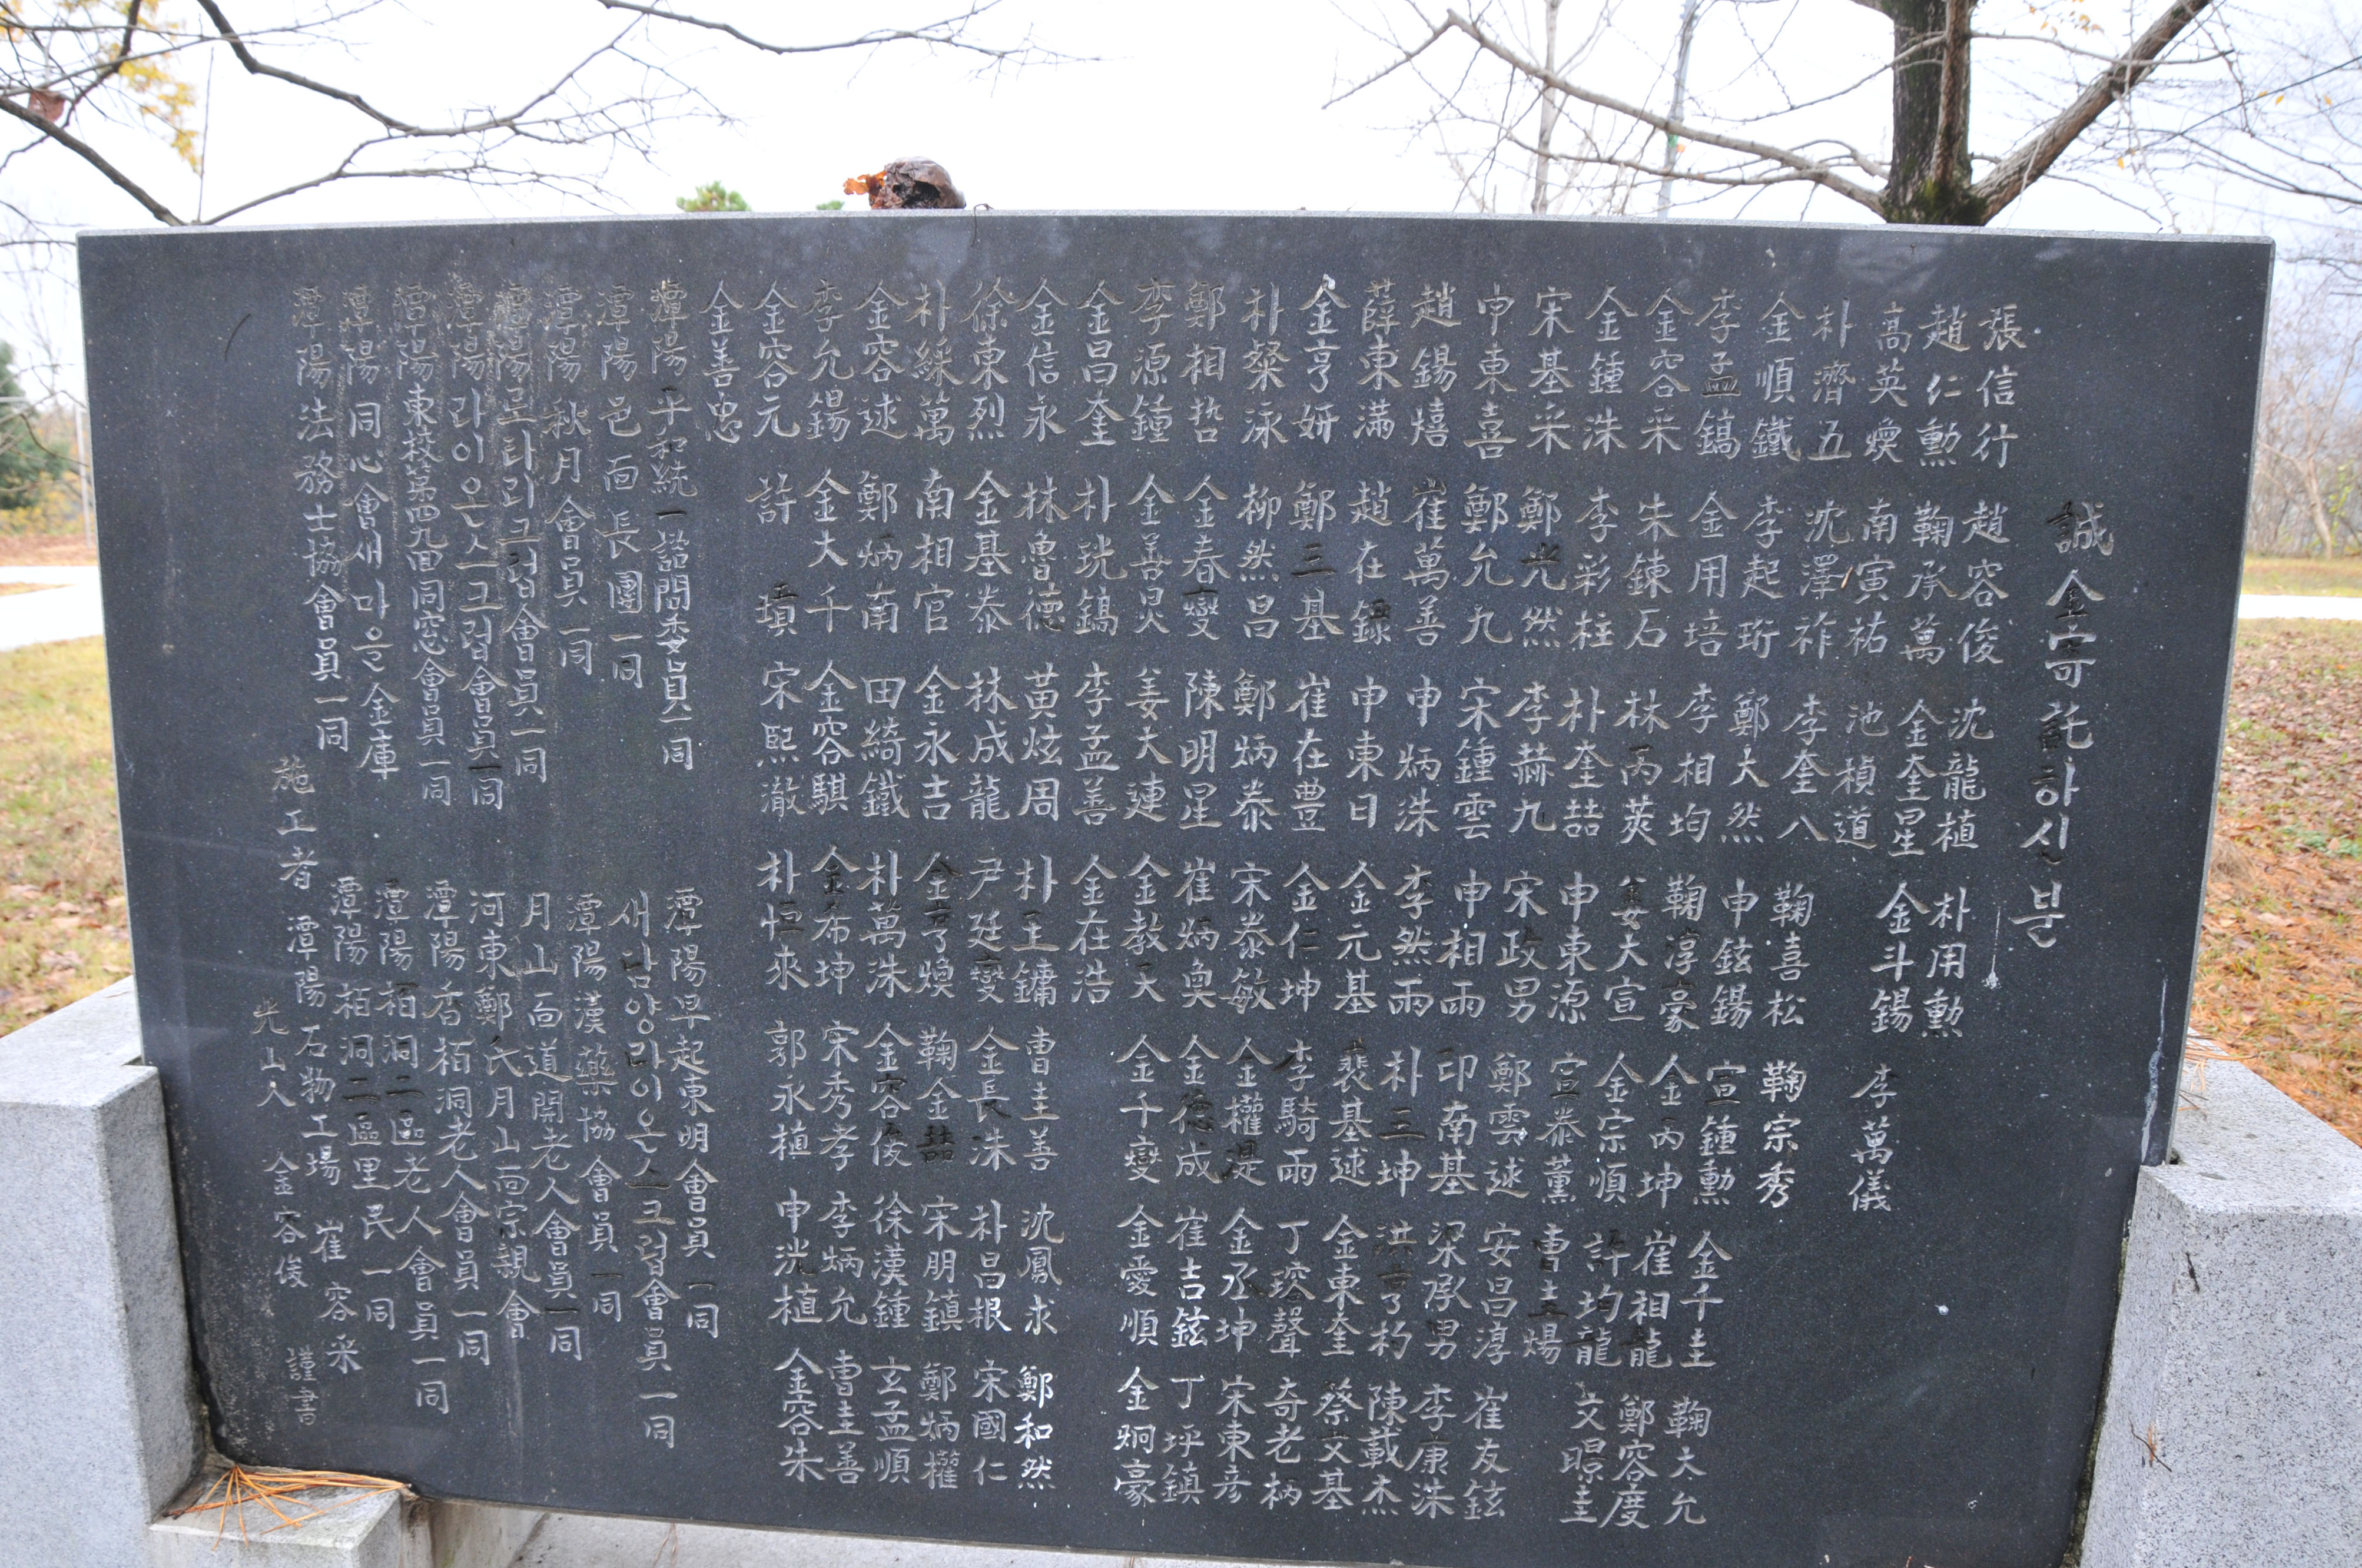 誠金寄託하신분
張信行 趙容俊 沈龍植 朴用勳
趙仁勳 鞠承萬 金奎星 金斗錫 李萬儀
高英煥 南寅祐 池楨道
朴濟五 沈澤祚 李奎八 鞠喜松 鞠宗秀
金順鐵 李起珩 鄭大然 申鉉錫 宣鍾勳 金千圭 鞠大允
李孟鎬 金用培 李相均 鞠淳豪 金丙坤 崔相龍 鄭容度
金容采 朱鍊石 林丙英 姜大宣 金宗順 許均龍 文暻圭
金鍾洙 李彩柱 朴奎喆 申東源 宣泰薰 曺圭煬
宋基采 鄭光然 李赫九 宋政男 鄭雲述 安昌淳 崔友鉉
申東喜 鄭允九 宋鍾雲 申相雨 印南基 梁承男 李康洙
趙錫熺 崔萬善 申炳洙 李然雨 朴三坤 洪亨杓 陳載杰
薛東滿 趙在錄 申東日 金元基 裵基述 金東奎 蔡文基
金亨姸 鄭三基 崔在豊 金仁坤 李騎雨 丁瑢聲 奇老柄
朴粲泳 柳然昌 鄭炳泰 宋泰敏 金權湜 金丞坤 宋東彦
鄭相哲 金春燮 陳明星 崔炳奐 金德成 崔吉鉉 丁坪鎭
李源鍾 金善炅 姜大連 金敎天 金千燮 金愛順 金炯豪
金昌奎 朴珖鎬 李孟善 金在浩
金信永 林魯德 黃炫周 朴王鏞 曺圭善 沈鳳求 鄭和然
徐東烈 金基泰 林成龍 尹廷燮 金長洙 朴昌根 宋國仁
朴綵萬 南相官 金永吉 金亨煥 鞠金喆 宋朋鎭 鄭炳權
金容述 鄭炳南 田綺鐵 朴萬洙 金容俊 徐漢鍾 玄孟順
李允錫 金大千 金容騏 金希坤 宋秀孝 李炳允 曺圭善
金容元 許塡 宋熙澈 朴恒來 郭永植 申洸植 金容朱
金善忠
潭陽平和統一諮問委員一同 潭陽早起東明會員一同
潭陽邑面長團一同 새담양라이온스크럽會員一同
潭陽秋月會員一同 潭陽漢藥協會員一同
潭陽로타리크럽會員一同 月山面道開老人會員一同
潭陽라이온스크럽會員一同 河東鄭氏月山面宗親會
潭陽東校第四九回同窓會員一同 潭陽香栢洞老人會員一同
潭陽同心會새마을金庫 潭陽栢洞二區老人會員一同
潭陽法務士協會員一同 潭陽栢洞二區里民一同
施工者 潭陽石物工場 崔容采
光山人 金容俊 謹書